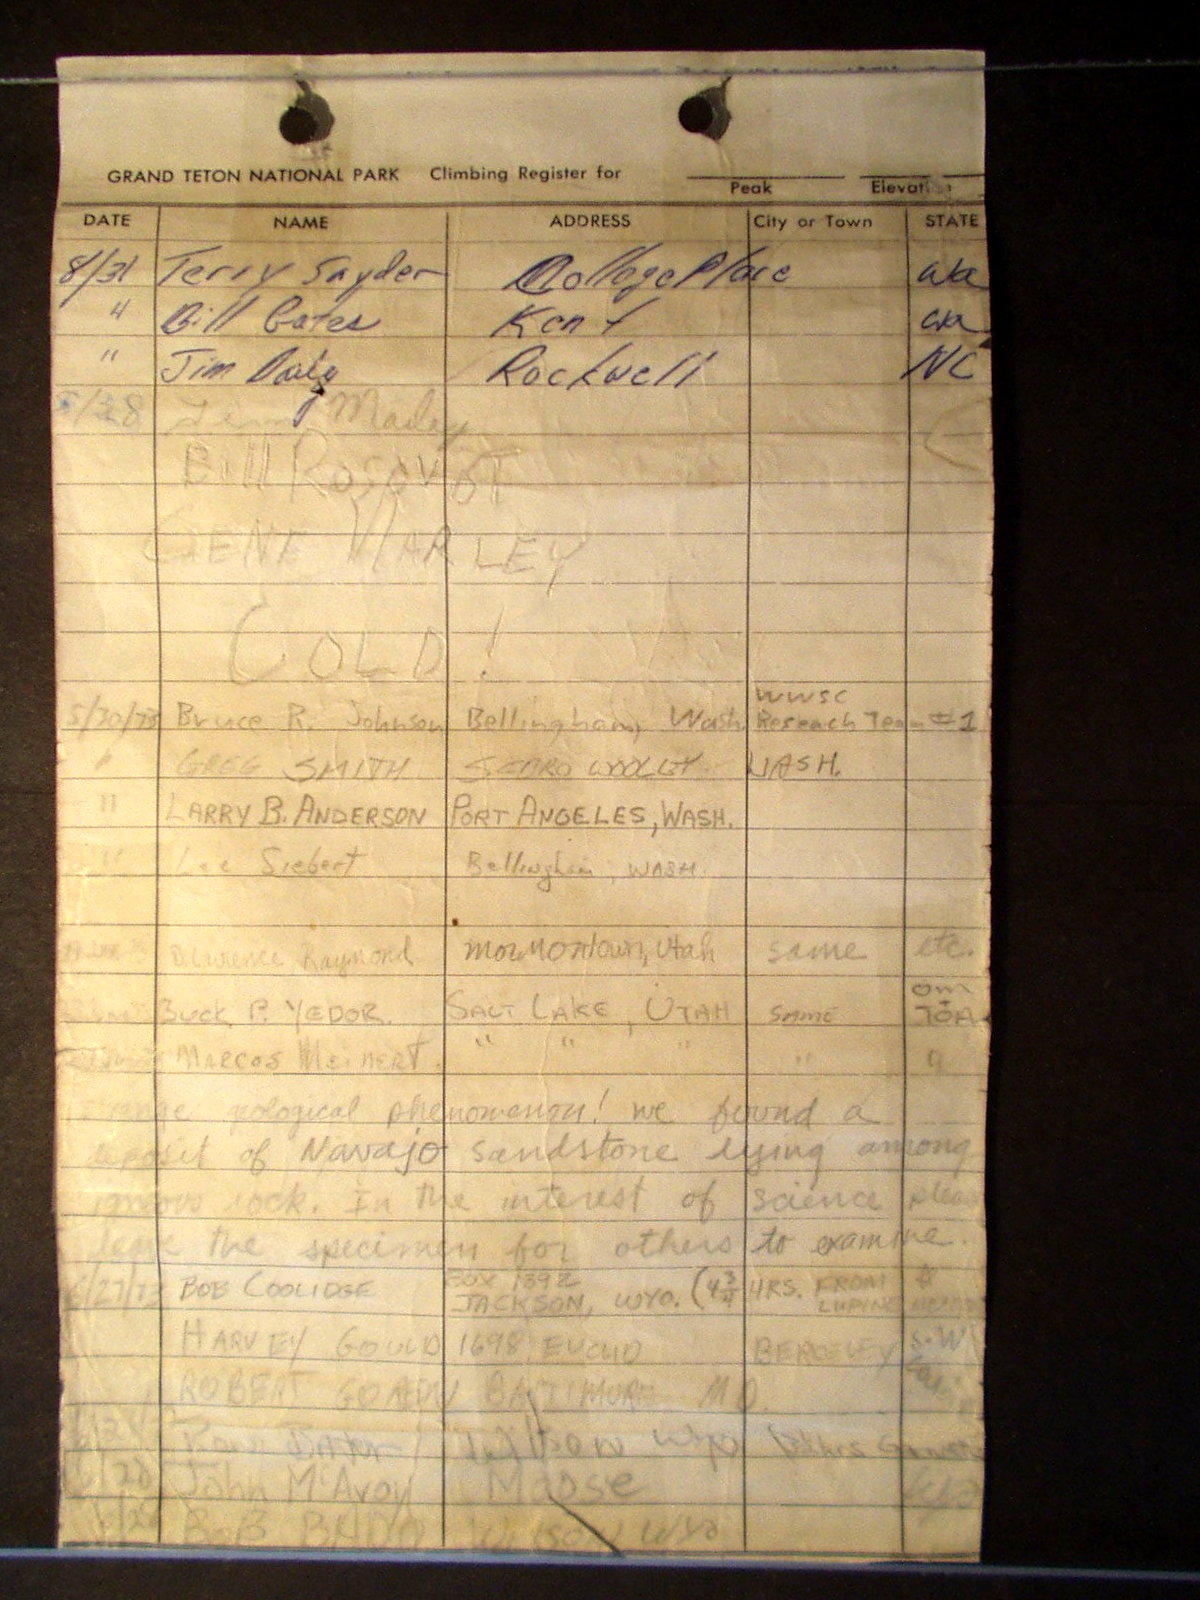 GRAND TETON NATIONAL PARK Climbing Register for
Peak Elevation
DATE NAME ADDRESS City or Town STATE
8/31 Terry Snyder College Place Wa
" Bill Gates Kent Wa
" Jim Daly Rockwell NC
/28 Marley
Bill
GENE MARLEY
COLD!
WWSC
5/30/73 Bruce R. Johnson Bellingham, Wash. Reseach Team #1
" GREG SMITH SEDRO WOOLLEY WASH.
" LARRY B. ANDERSON PORT ANGELES, WASH.
" Lee Siebert Bellingham, WASH.
Raymond Mormontown, Utah same etc.
BUCK P. YEDOR. SALT LAKE, UTAH SAME
MARCOS MEINERT. " " " " "
geological phenomenon! we found a
deposit of Navajo sandstone lying among
igneous rock. In the interest of science pleas
leave the specimen for others to examine.
6/27/73 BOB COOLIDGE BOX 1392
JACKSON, WYO. (4 3/4 HRS. FROM
HARVEY GOULD 1698 EUCLID BERKELEY
ROBERT BALTIMORE MD.
Wilson Wyo
John McAvoy Moose
BOB WILSON WYO